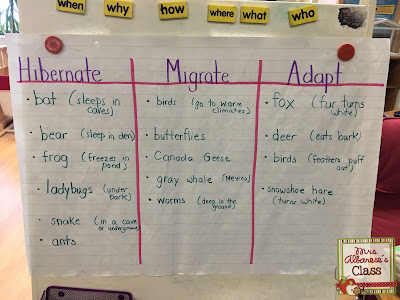 when why how where what who
Hibernate Migrate Adapt
• bat (sleeps in
caves)
• bear (sleep in den)
• frog (freezes in
pond)
• ladybugs (under
bark)
• snake (in a cave
or underground)
• ants
• birds (go to warm
climates)
• butterflies
• Canada Geese
• gray whale (Mexico)
• worms (deep in the
ground)
• fox (fur turns
white)
• deer (eats bark)
• birds (feathers puff
out)
• snowshoe hare
(turns white)
Mrs.
Albanese's
Class